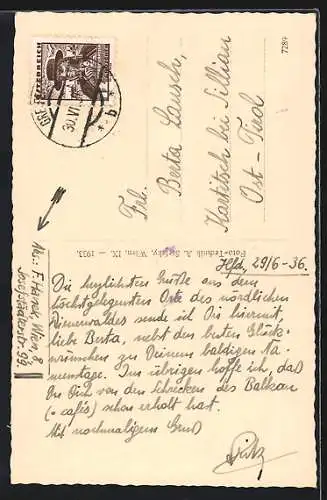 ÖSTERREICH
30.VI.
* b *
7289
Frl.
Berta Lausch,
Kartitsch bei Sillian
Ost-Tirol
Wien, IX. — 1933.
Abs.: F. Hanek, Wien, 8
Josefstädterstr. 99.
Hfd, 29/6-36.
Die herzlichsten Grüße aus dem
höchstgelegensten Orte des nördlichen
Wienerwaldes sende ich Dir hiermit,
liebe Berta, nebst den besten Glück-
wünschen zu Deinem baldigen Na-
menstage. Im übrigen hoffe ich, daß
Du Dich von den Schrecken des Balkan
(-cafés) schon erholt hast.
Mit nochmaligem Gruß
Fritz